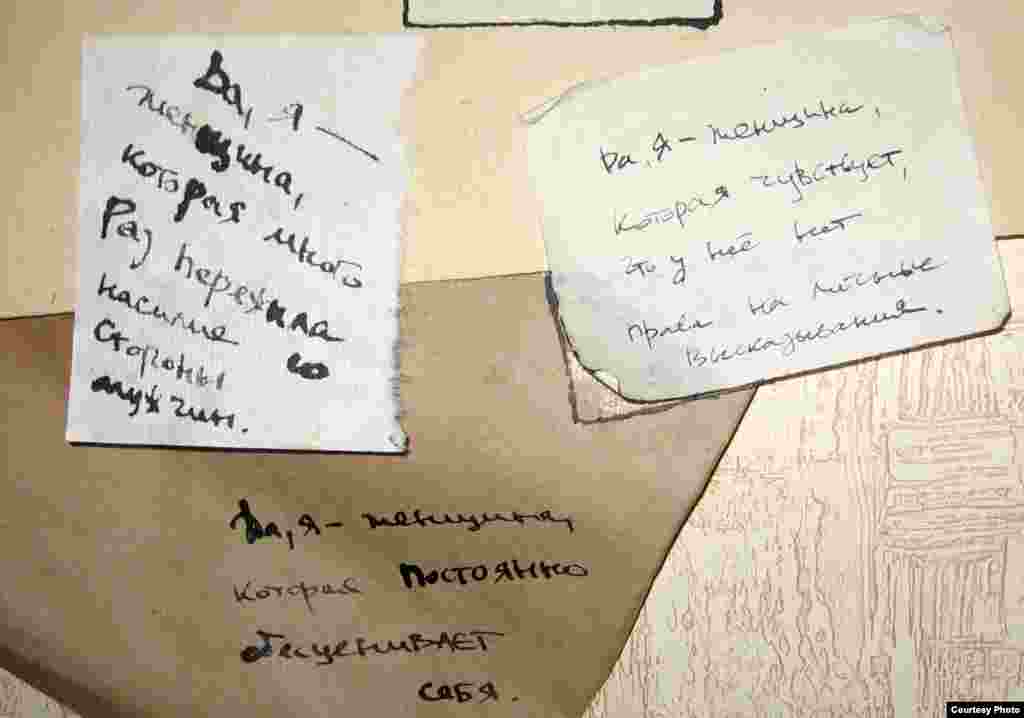 Да, я —
женщина,
которая много
раз пережила
насилие со
стороны
мужчин.
Да, я - женщина,
которая чувствует,
что у неё нет
права на личные
высказывания.
Да, я - женщина,
которая постоянно
обесценивает
себя.
Courtesy Photo